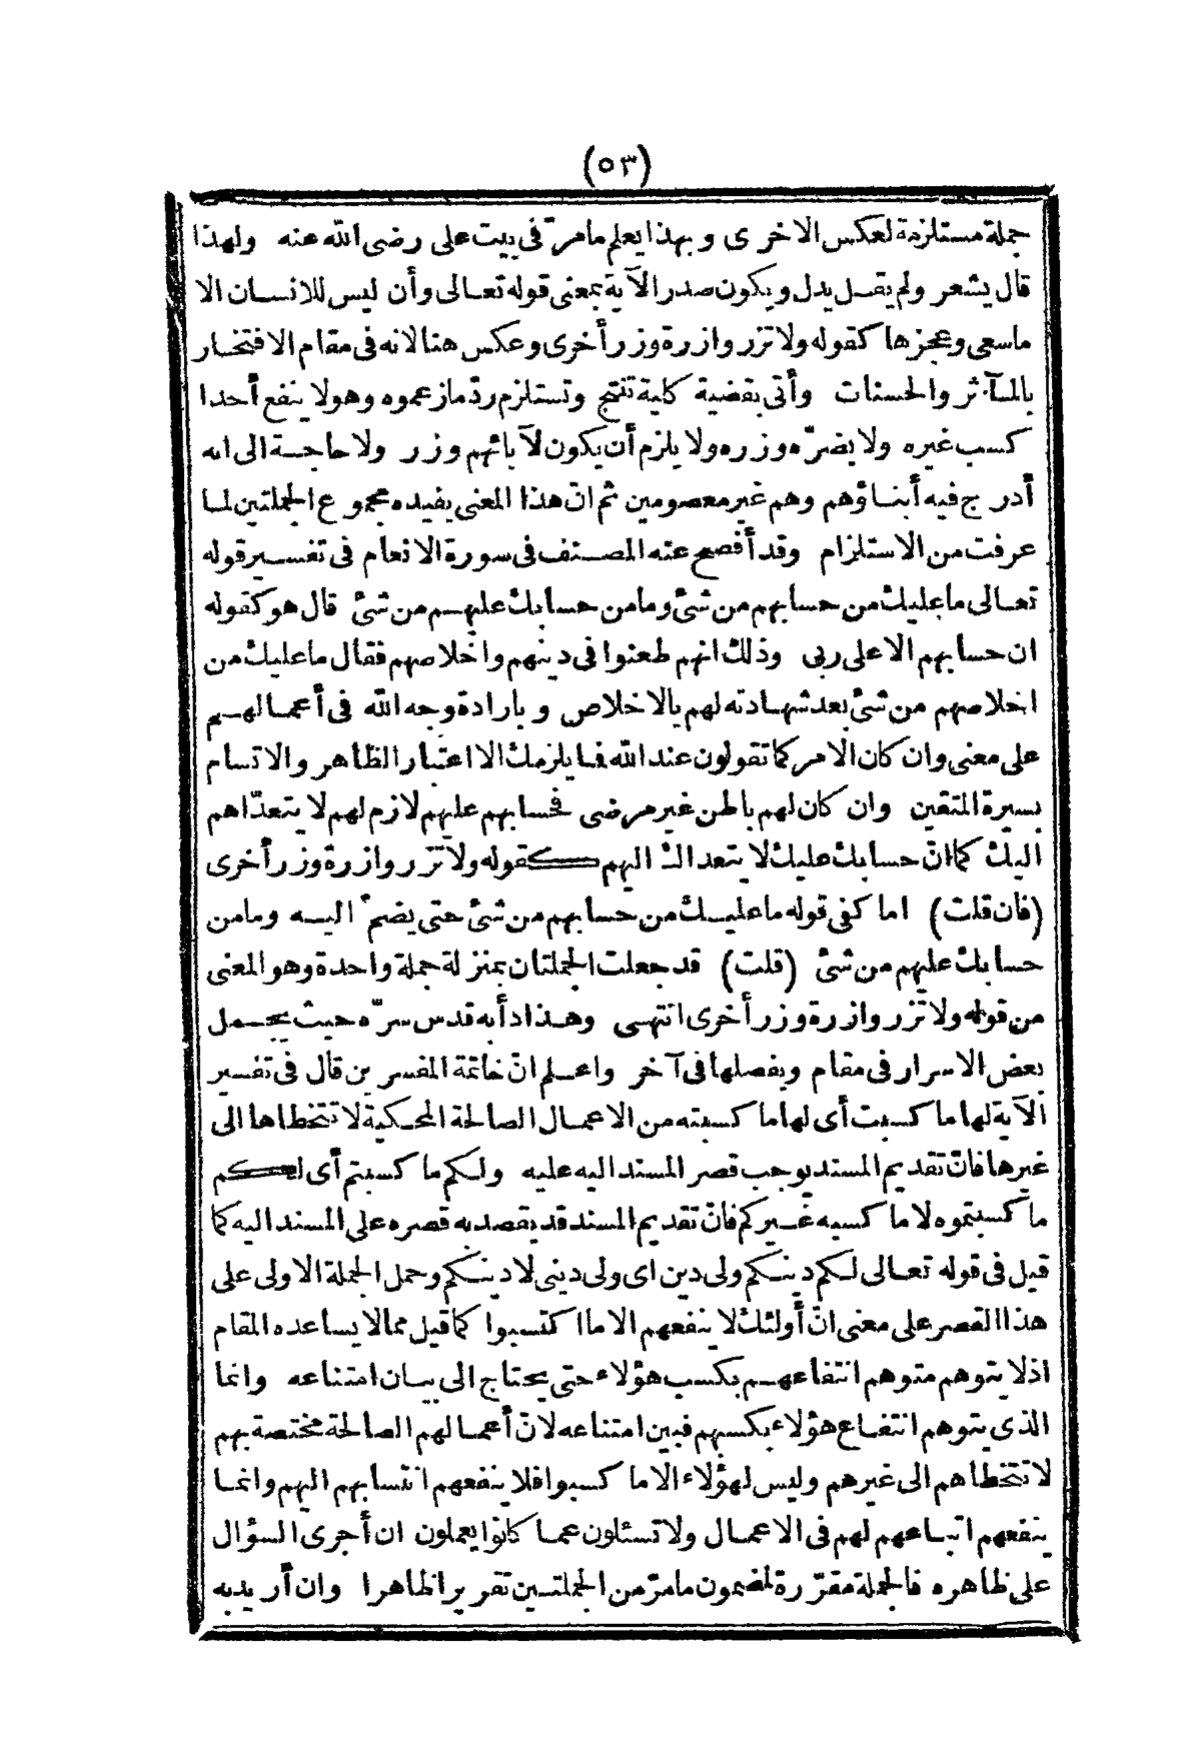 (٥٣)
جملة مستلزمة لعكس الاخرى وبهذا يعلم مامرّ فى بيت على رضى الله عنه ولهذا
قال يشعر ولم يقل يدل ويكون صدر الآية بمعنى قوله تعالى وأن ليس للانسان الا
ماسعى وعجزها كقوله ولا تزر وازرة وزر أخرى وعكس هنا لانه فى مقام الافتخار
بالمآثر والحسنات وأتى بقضية كلية تنتج وتستلزم ردّ مازعموه وهو لا ينفع أحدا
كسب غيره ولا يضرّه وزره ولا يلزم أن يكون لآبائهم وزر ولا حاجة الى انه
أدرج فيه أبناؤهم وهم غير معصومين ثم انّ هذا المعنى يفيده مجموع الجملتين لما
عرفت من الاستلزام وقد أفصح عنه المصنف فى سورة الانعام فى تفسير قوله
تعالى ما عليك من حسابهم من شئ وما من حسابك عليهم من شئ قال هو كقوله
ان حسابهم الا على ربى وذلك انهم طعنوا فى دينهم واخلاصهم فقال ما عليك من
اخلاصهم من شئ بعد شهادته لهم بالاخلاص وبارادة وجه الله فى أعمالهم
على معنى وان كان الامر كما تقولون عند الله فما يلزمك الا اعتبار الظاهر والاتسام
بسيرة المتقين وان كان لهم باطن غير مرضى فحسابهم عليهم لازم لهم لا يتعدّاهم
اليك كما انّ حسابك عليك لا يتعداك اليهم كقوله ولا تزر وازرة وزر أخرى
(فان قلت) اما كفى قوله ما عليك من حسابهم من شئ حتى يضمّ اليه وما من
حسابك عليهم من شئ (قلت) قد جعلت الجملتان بمنزلة جملة واحدة وهو المعنى
من قوله ولا تزر وازرة وزر أخرى انتهى وهذا دأبه قدس سرّه حيث يجمل
بعض الاسرار فى مقام ويفصلها فى آخر واعلم انّ خاتمة المفسرين قال فى تفسير
الآية لها ما كسبت أى لها ما كسبته من الاعمال الصالحة المحكية لا تتخطاها الى
غيرها فانّ تقديم المسند يوجب قصر المسند اليه عليه ولكم ما كسبتم أى لكم
ما كسبتموه لا ما كسبه غيركم فانّ تقديم المسند قد يقصد به قصره على المسند اليه كما
قيل فى قوله تعالى لكم دينكم ولى دين اى ولى دينى لا دينكم وحمل الجملة الاولى على
هذا القصر على معنى انّ أولئك لا ينفعهم الا ما اكتسبوا كما قيل مما لا يساعده المقام
اذ لا يتوهم متوهم انتفاعهم بكسب هؤلاء حتى يحتاج الى بيان امتناعه وانما
الذى يتوهم انتفاع هؤلاء بكسبهم فبين امتناعه لانّ أعمالهم الصالحة مختصة بهم
لا تتخطاهم الى غيرهم وليس لهؤلاء الا ما كسبوا فلا ينفعهم انتسابهم اليهم وانما
ينفعهم اتباعهم لهم فى الاعمال ولا تسئلون عما كانوا يعملون ان أجرى السؤال
على ظاهره فالجملة مقرّرة لمضمون مامرّ من الجملتين تقريرا ظاهرا وان أريد به